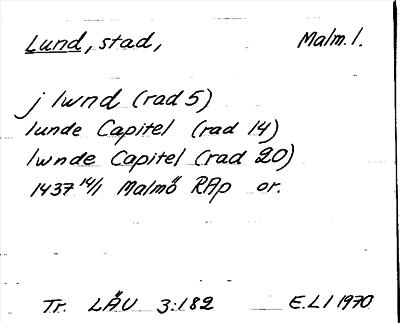 Lund, stad, Malm. l.
j lwnd (rad 5)
lunde Capitel (rad 14)
lwnde Capitel (rad 20)
1437 14/1 Malmö RAp or.
Tr. LÄU 3:182 E.L l 1970